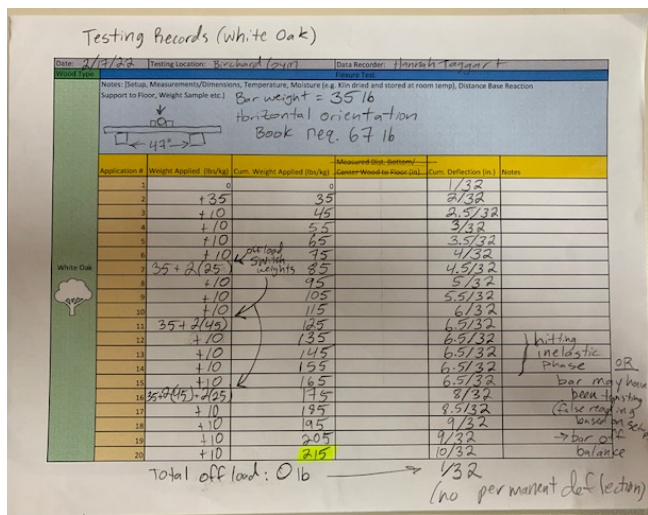 Testing Records (White Oak)
Date: 2/17/22 Testing Location: Birchard Gym Data Recorder: Hannah Taggart
Wood Type Flexure Test
Notes: [Setup, Measurements/Dimensions, Temperature, Moisture (e.g. Kiln dried and stored at room temp), Distance Base Reaction
Support to Floor, Weight Sample etc.) Bar weight = 35 lb
Horizontal orientation
Book req. 67 lb
47"
Application # Weight Applied (lbs/kg) Cum. Weight Applied (lbs/kg) Measured Dist. Bottom/ Center Wood to Floor (in) Cum. Deflection (in.) Notes
1 0 0 1/32
2 +35 35 2/32
3 +10 45 2.5/32
4 +10 55 3/32
5 +10 65 3.5/32
6 +10 75 4/32
off load switch weights
White Oak 7 35+2(25) 85 4.5/32
8 +10 95 5/32
9 +10 105 5.5/32
10 +10 115 6/32
11 35+2(45) 125 6.5/32
12 +10 135 6.5/32 hitting
13 +10 145 6.5/32 inelastic
14 +10 155 6.5/32 phase OR
15 +10 165 6.5/32 bar may have
16 35+2(45)+2(25) 175 8/32 been twisting
17 +10 185 8.5/32 (false reading
18 +10 195 9/32 based on setup
19 +10 205 9/32 → bar off
20 +10 215 10/32 balance
Total off load: 0 lb → 1/32
(no permanent deflection)